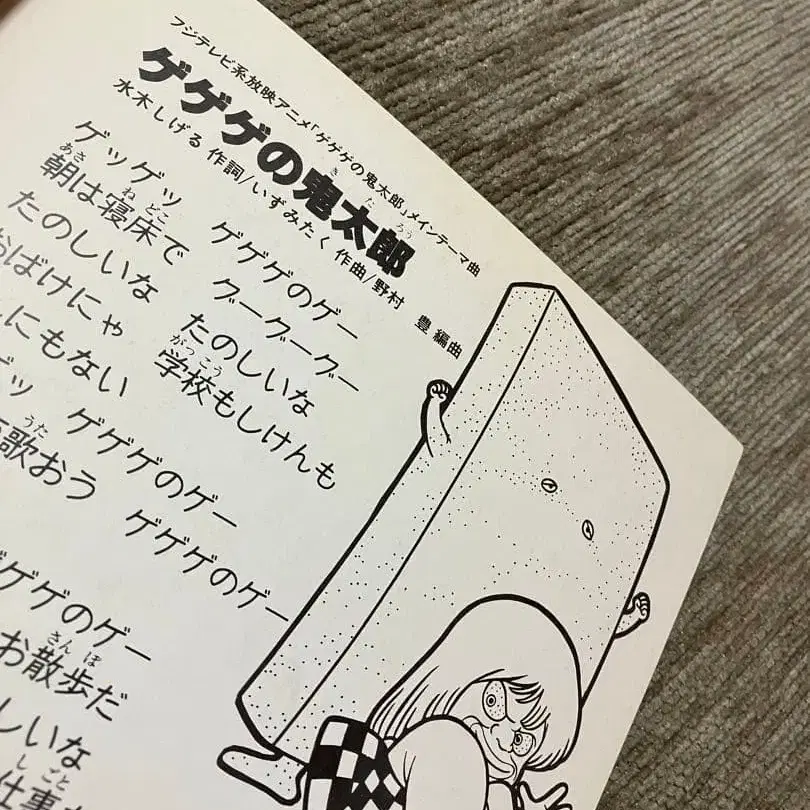 フジテレビ系放映アニメ「ゲゲゲの鬼太郎」メインテーマ曲
きたろう
ゲゲゲの鬼太郎
水木しげる 作詞/いずみたく 作曲/野村 豊 編曲
ゲッゲッ ゲゲゲのゲー
あさ ねどこ
朝は寝床で グーグーグー
たのしいな たのしいな
がっこう
おばけにゃ 学校もしけんも
にもない
ッ ゲゲゲのゲー
うた
歌おう ゲゲゲのゲー
ゲゲのゲー
さんぽ
お散歩だ
しいな
しごと
仕事